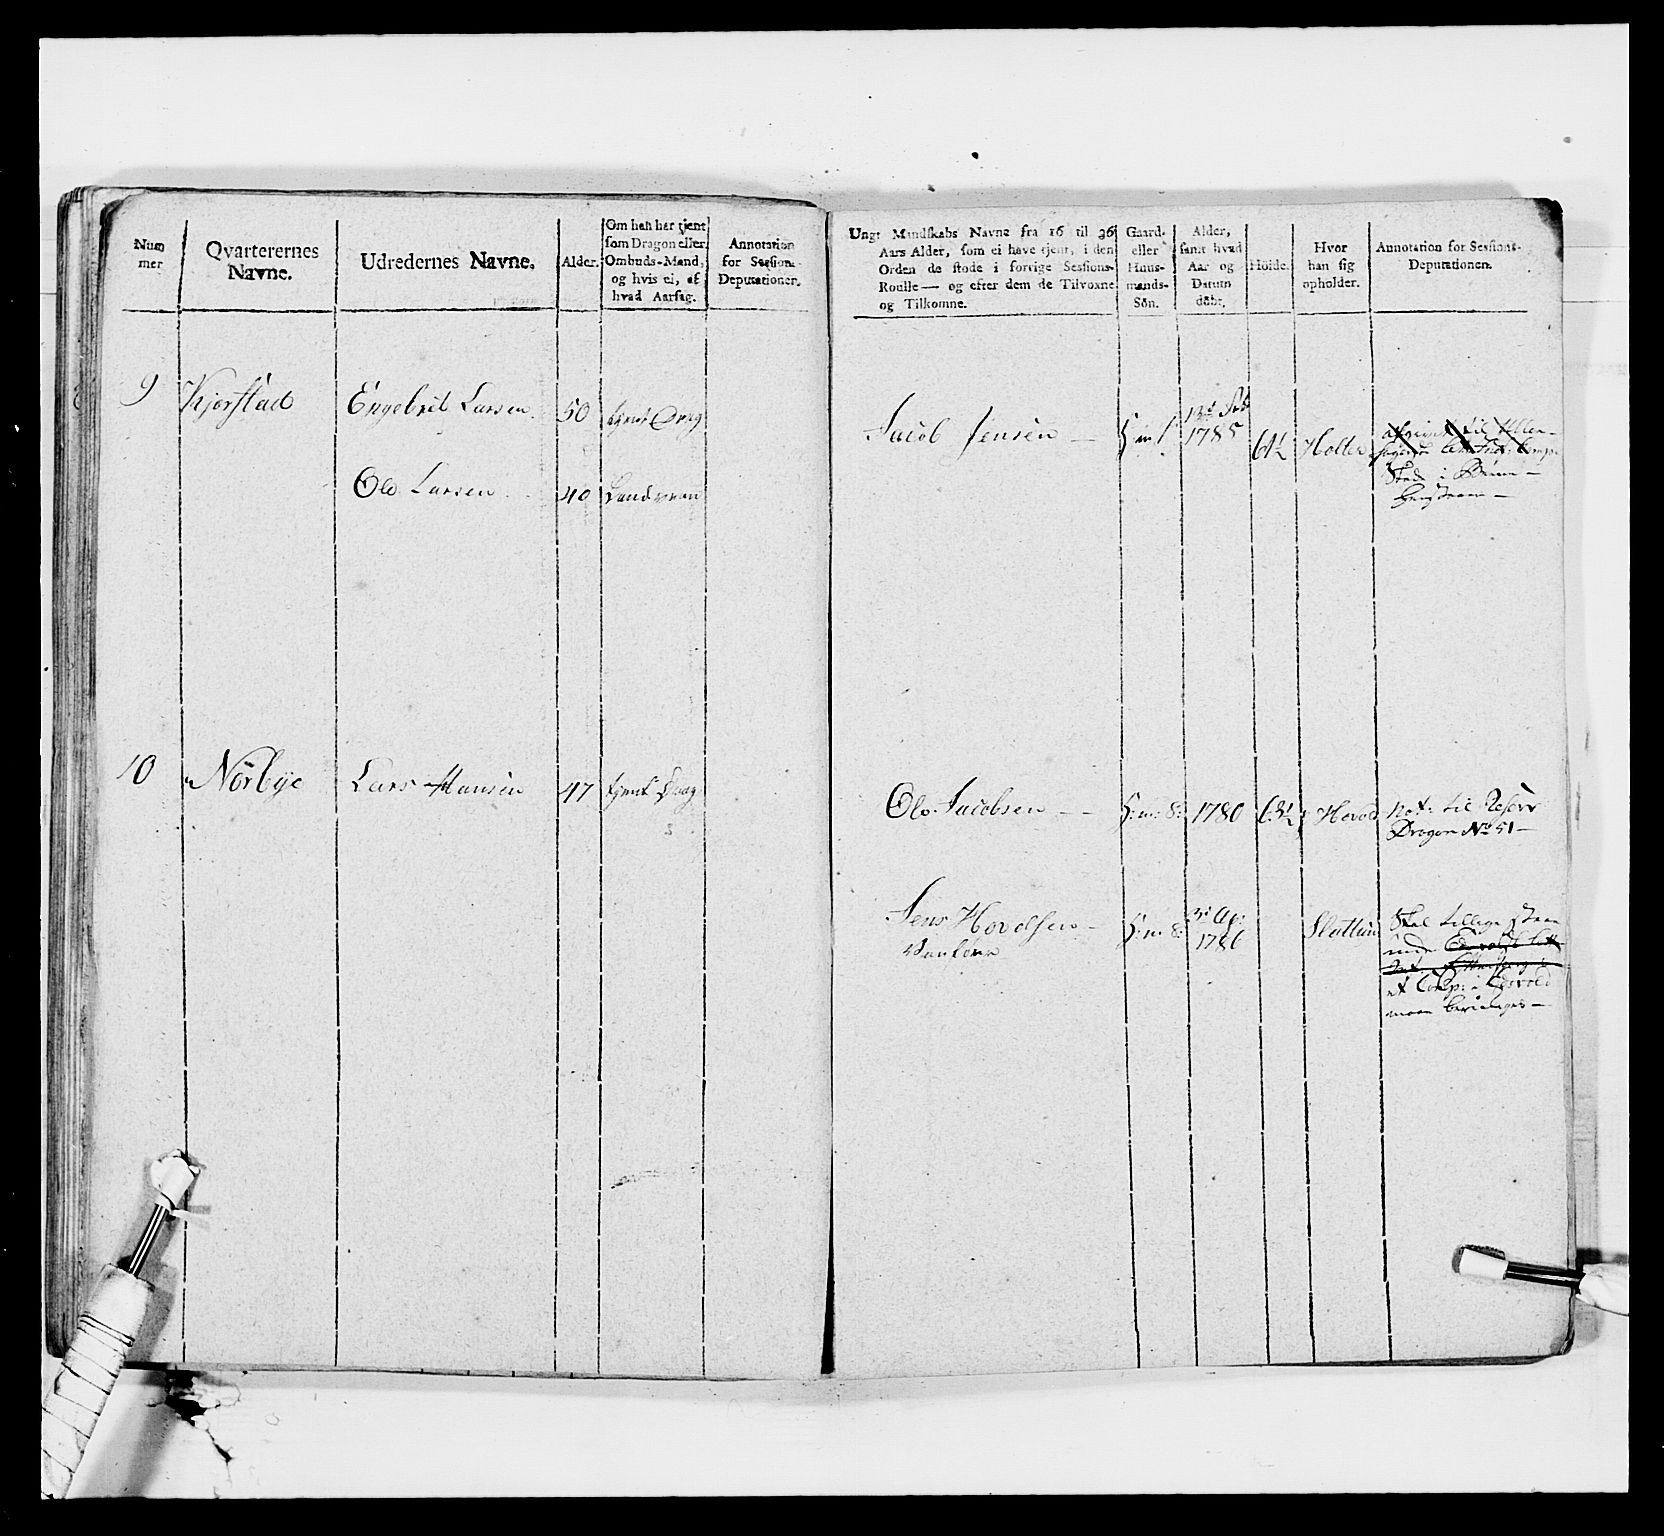 Num
mer
Qvarterernes
Navne.
Udredernes Navne.
Alder.
Om han har tjent
som Dragon eller
Ombuds-Mand,
og hvis ei, af
hvad Aarsag.
Annotation
for Sessions-
Deputationen.
Ungt Mandskabs Navne fra 16 til 36
Aars Alder, som ei have tjent, i den
Orden de stode i forrige Sessions-
Roulle — og efter dem de Tilvoxne
og Tilkomne.
Gaard-
eller
Huus-
mands-
Sön.
Alder,
samt hvad
Aar og
Datum
döbt.
Höide.
Hvor
han sig
opholder.
Annotation for Sessions-
Deputationen.
9 Kjorstad Engebret Larsen 50 tjent Drag
Ole Larsen 40 Landværn
Jacob Jensen — H: m: S:
1785 61½ Holter
til
Comp:
Stede i
10 Norbye Lars Hansen 47 tjent Drag
Ole Jacobsen — H: m: S: 1780 63½ Hovod Not: til Reserv
Dragon No 51 —
Jens Hovelsen — H: m: S: 3: Ap: 1786 Slottum Skal tillige staae
Vanför
et Comp: Edsvold
maae